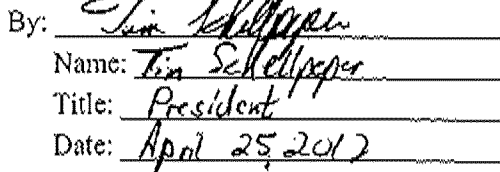 By: Tim Schellpeper
Name: Tim Schellpeper
Title: President
Date: April 25, 2012